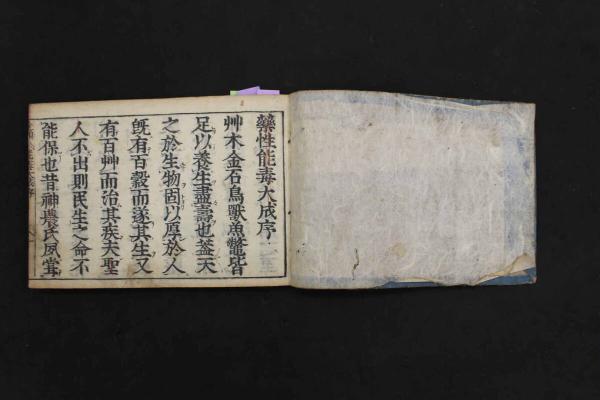 藥性能毒大成序
艸木金石鳥獸魚鼈皆
足以養生盡壽也蓋天
之於生物固以厚於人
既有百穀而遂其生又
有百艸而治其疾夫聖
人不出則民生之命不
能保也昔神農氏夙甞